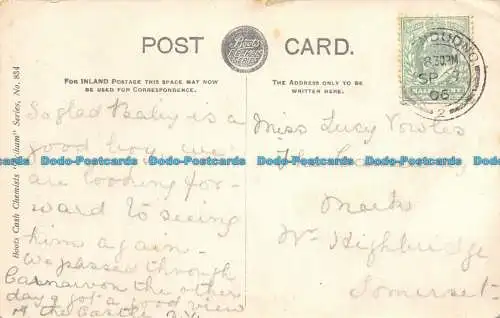 POST CARD.
Boots
FOR INLAND POSTAGE THIS SPACE MAY NOW
BE USED FOR CORRESPONDENCE.
THE ADDRESS ONLY TO BE
WRITTEN HERE.
8.30PM
SP
06
2
HALFPENNY
So glad Baby is a
good boy we
are looking for-
ward to seeing
him again -
We passed through
Carnarvon the other
day & got a good view
of the Castle
Miss Lucy
The
Mark
Nr. Highbridge
Somerset
Boots Cash Chemists Series, No. 854
Dodo-Postcards Dodo-Postcards Dodo-Postcards Dodo-Postcards Dodo-Postcards